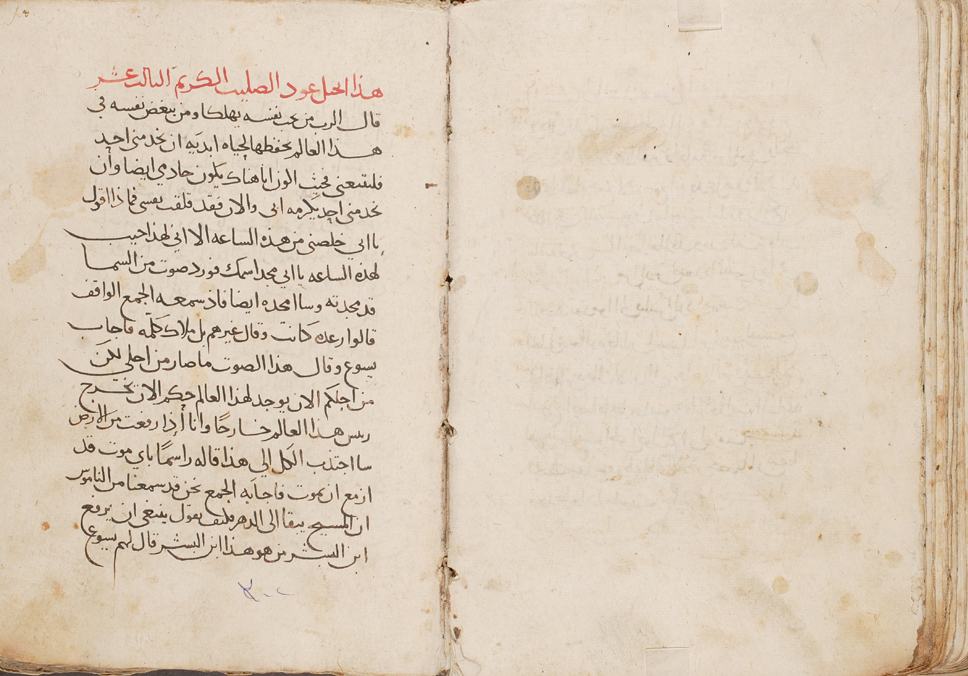 هذا انجيل عود الصليب الكريم الثالث عشر
قال الرب من يحب نفسه يهلكها ومن يبغض نفسه في
هذا العالم يحفظها لحياه ابديه ان خدمني احد
فليتبعني فحيث اكون انا هناك يكون خادمي ايضا وان
خدمني احد يكرمه ابي والان فقد قلقت نفسي فماذا اقول
يا ابي خلصني من هذه الساعه الا اني لهذا جيت
لهذه الساعه يا ابي مجد اسمك فورد صوت من السما
قد مجدته وسا امجده ايضا فاذ سمعه الجمع الواقف
قالوا رعد كانت وقال غيرهم بل ملاك كلمه فاجاب
يسوع وقال هذا الصوت ما صار من اجلي لكن
من اجلكم الان يوجد لهذا العالم حكم الان يخرج
ريس هذا العالم خارجًا وانا إذا رفعت من الارض
سا اجتذب الكل الي هذا قاله راسمًا باي موت قد
ازمع ان يموت فاجابه الجمع نحن قد سمعنا من الناموس
ان المسيح يبقا الى الدهر فكيف تقول ينبغي ان يرفع
ابن البشر من هو هذا ابن البشر قال لهم يسوع